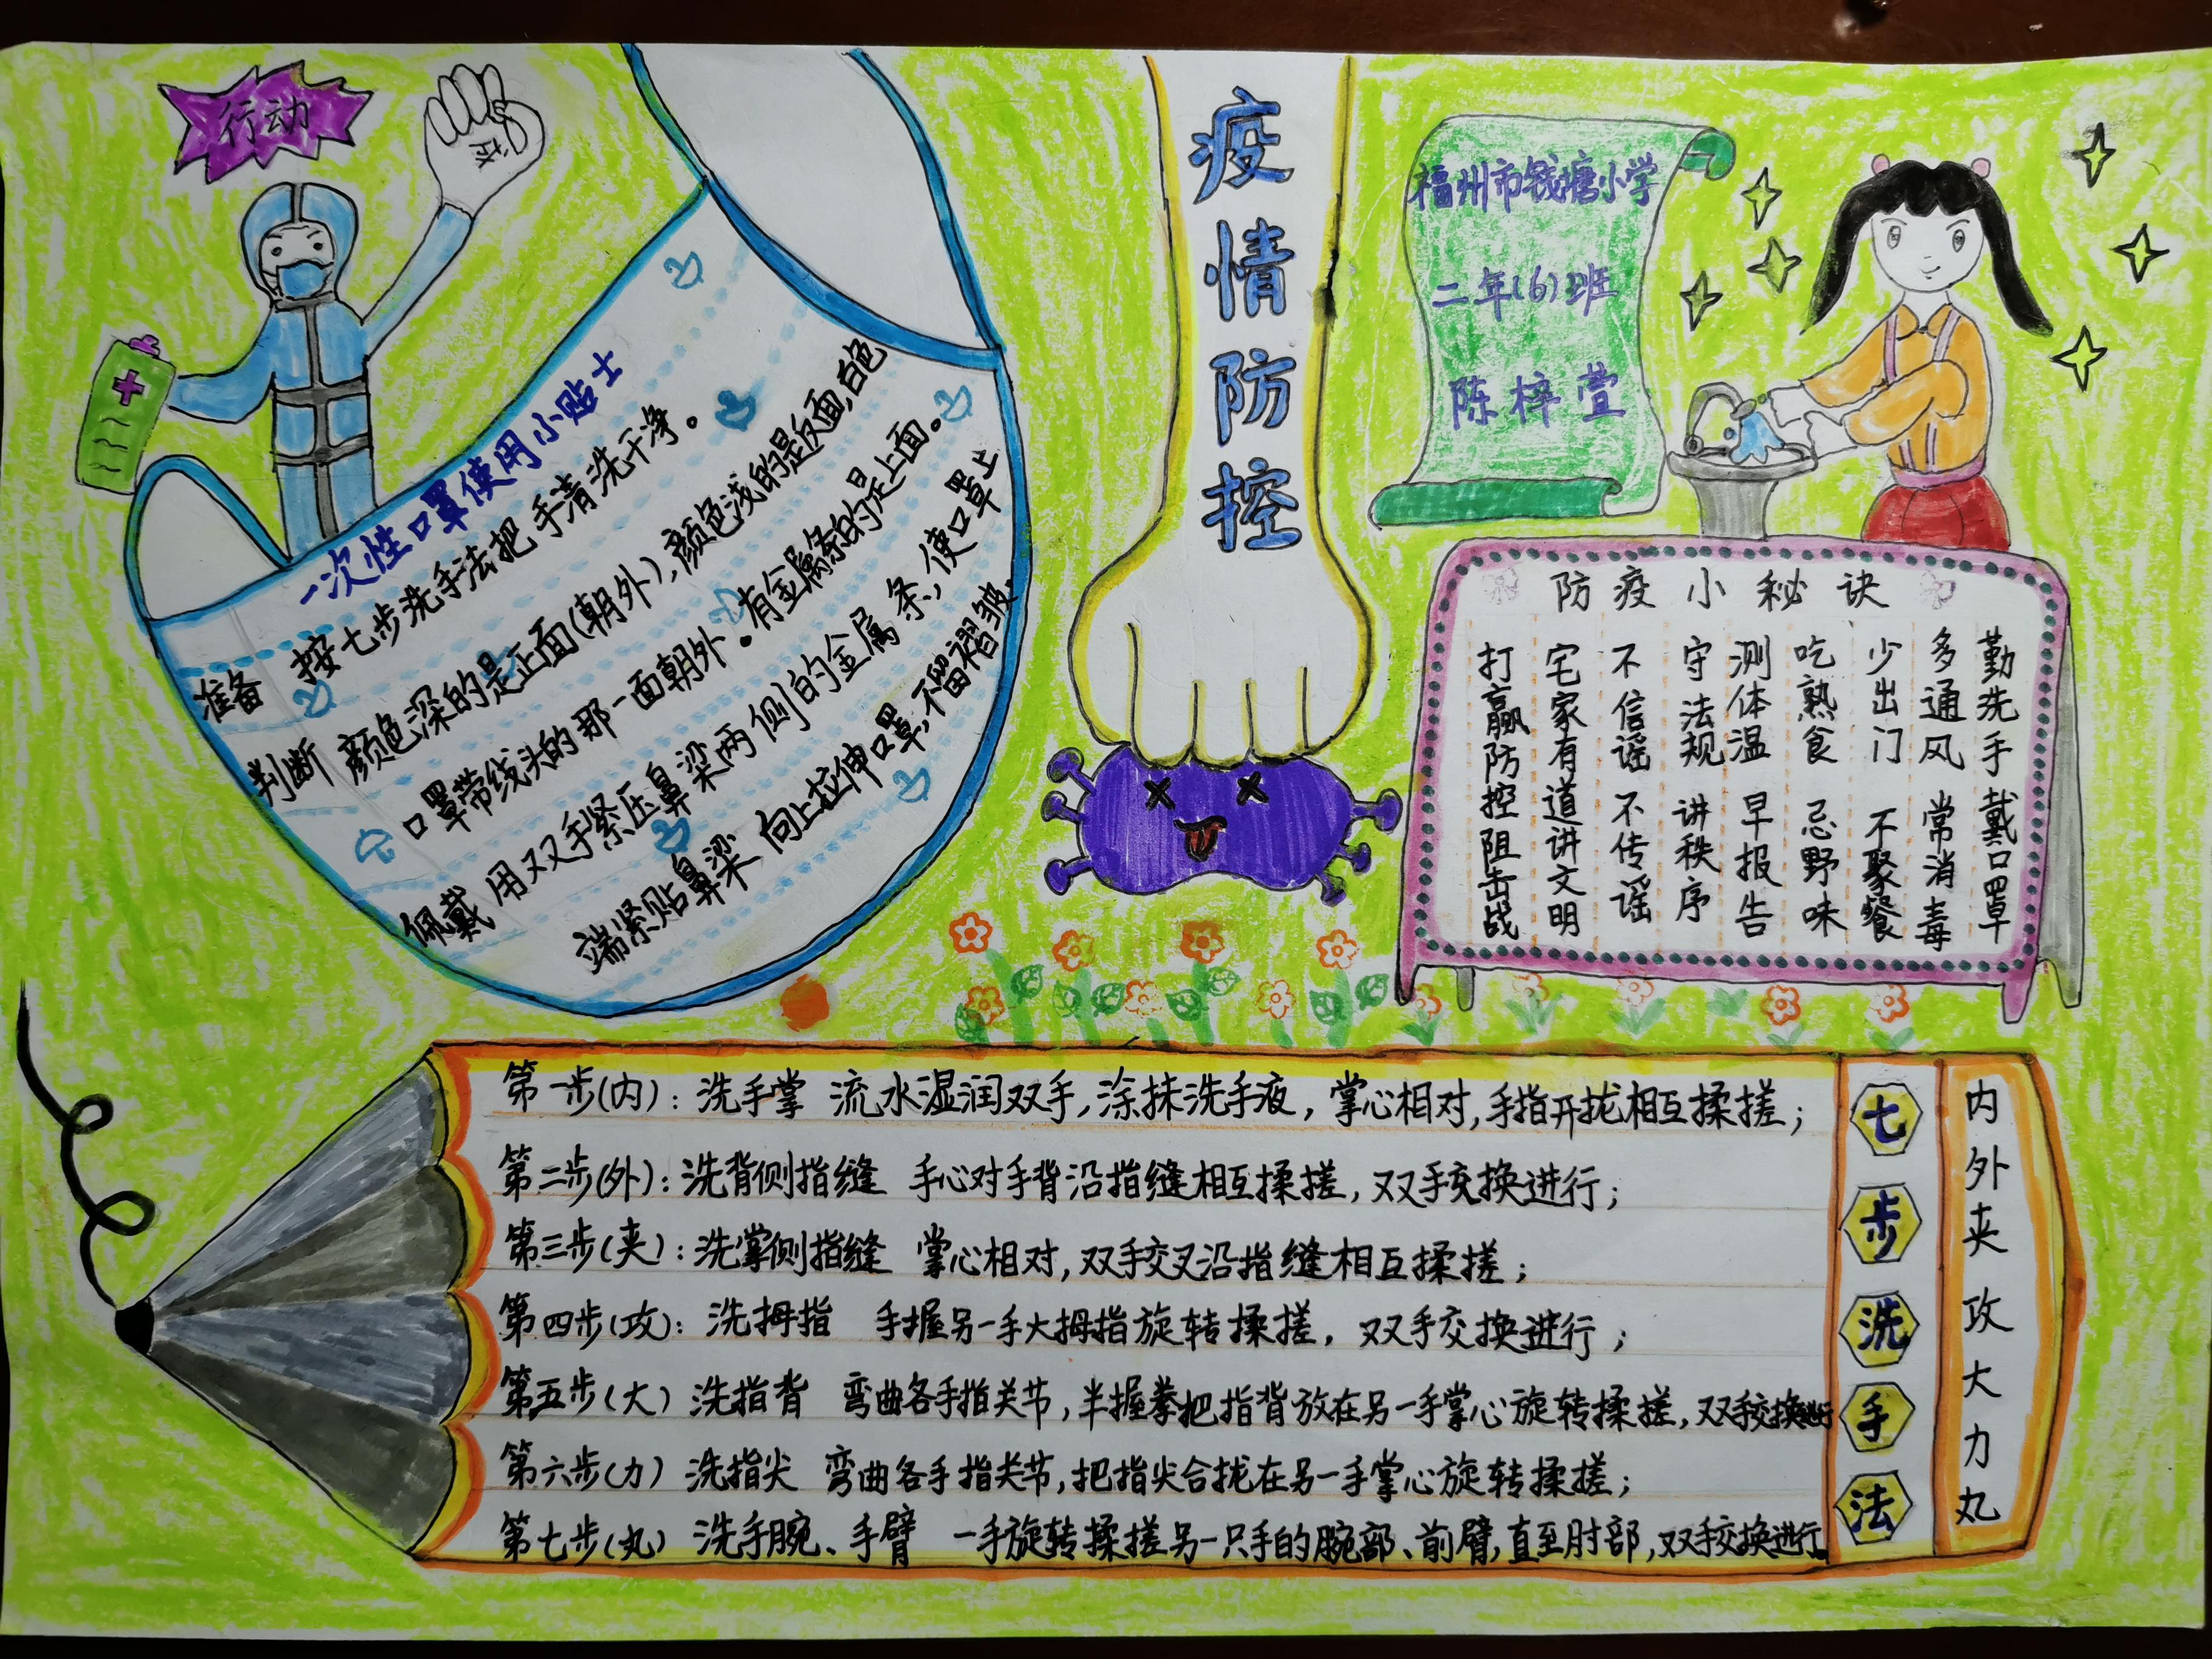 行动
一次性口罩使用小贴士
准备 按七步洗手法把手清洗干净。
判断 颜色深的是正面(朝外),颜色浅的是反面,白色
口罩带线头的那一面朝外。有金属条的是上面。
佩戴 用双手紧压鼻梁两侧的金属条,使口罩上
端紧贴鼻梁 向上拉伸口罩,不留褶皱.
疫情防控
福州市钱塘小学
二年(6)班
陈梓萱
防疫小秘诀
勤洗手 戴口罩
多通风 常消毒
少出门 不聚餐
吃熟食 忌野味
测体温 早报告
守法规 讲秩序
不信谣 不传谣
宅家有道讲文明
打赢防控阻击战
第一步(内):洗手掌 流水湿润双手,涂抹洗手液,掌心相对,手指开拢相互揉搓;
第二步(外):洗背侧指缝 手心对手背沿指缝相互揉搓,双手交换进行;
第三步(夹):洗掌侧指缝 掌心相对,双手交叉沿指缝相互揉搓;
第四步(攻):洗拇指 手握另一手大拇指旋转揉搓,双手交换进行;
第五步(大) 洗指背 弯曲各手指关节,半握拳把指背放在另一手掌心旋转揉搓,双手交换进行
第六步(力) 洗指尖 弯曲各手指关节,把指尖合拢在另一手掌心旋转揉搓;
第七步(丸) 洗手腕、手臂 一手旋转揉搓另一只手的腕部、前臂,直至肘部,双手交换进行
七步洗手法
内外夹攻大力丸